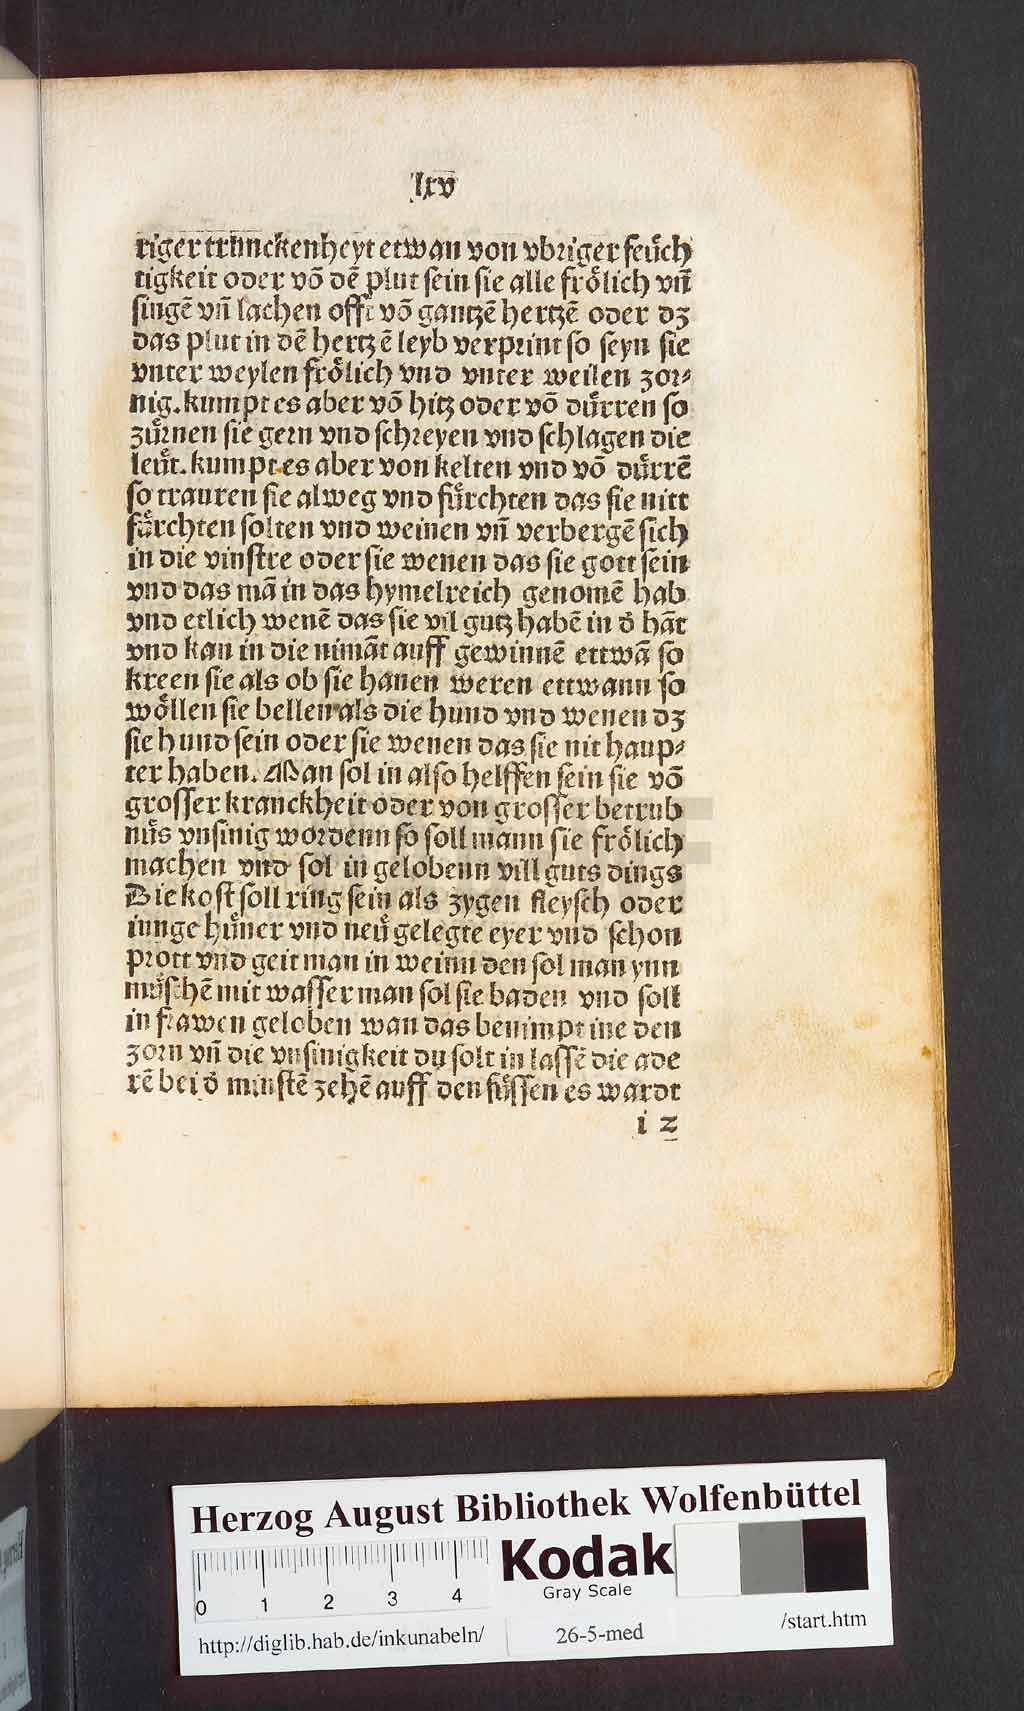 lxv
riger trunckenheyt etwan von vbriger feuͤch
tigkeit oder vō dē plut sein sie alle froͤlich vñ
singē vñ lachen offt vō gantzē hertzē oder dz
das plut in dē hertzē leyb verprint so seyn sie
vnter weylen froͤlich vnd vnter weilen zor⸗
nig. kumpt es aber vō hitz oder vō duͤrren so
zuͤrnen sie gern vnd schreyen vnd schlagen die
leuͤt. kumpt es aber von kelten vnd vō duͤrrē
so trauren sie alweg vnd fuͤrchten das sie nitt
fuͤrchten solten vnd weinen vñ verbergē sich
in die vinstre oder sie wenen das sie gott sein
vnd das mā in das hymelreich genomē hab
vnd etlich wenē das sie vil gutz habē in d̄ hāt
vnd kan in die nimāt auff gewinnē ettwā so
kreen sie als ob sie hanen weren ettwann so
woͤllen sie bellen als die hund vnd wenen dz
sie hund sein oder sie wenen das sie nit haup⸗
ter haben. Man sol in also helffen sein sie vō
grosser kranckheit oder von grosser betrub
nuͤs vnsinig wordenn so soll mann sie froͤlich
machen vnd sol in gelobenn vill guts dings
Die kost soll ring sein als zygen fleysch oder
iunge huͤner vnd neuͤ gelegte eyer vnd schon
prott vnd geit man in weinn den sol man ynn
muͤschē mit wasser man sol sie baden vnd soll
in frawen geloben wan das benimpt ine den
zorn vñ die vnsinigkeit du solt in lassē die ade
rē bei d̄ minstē zehē auff den fuͤssen es wardt
i 2
Herzog August Bibliothek Wolfenbüttel
0 1 2 3 4
Kodak
Gray Scale
http://diglib.hab.de/inkunabeln/
26-5-med
/start.htm